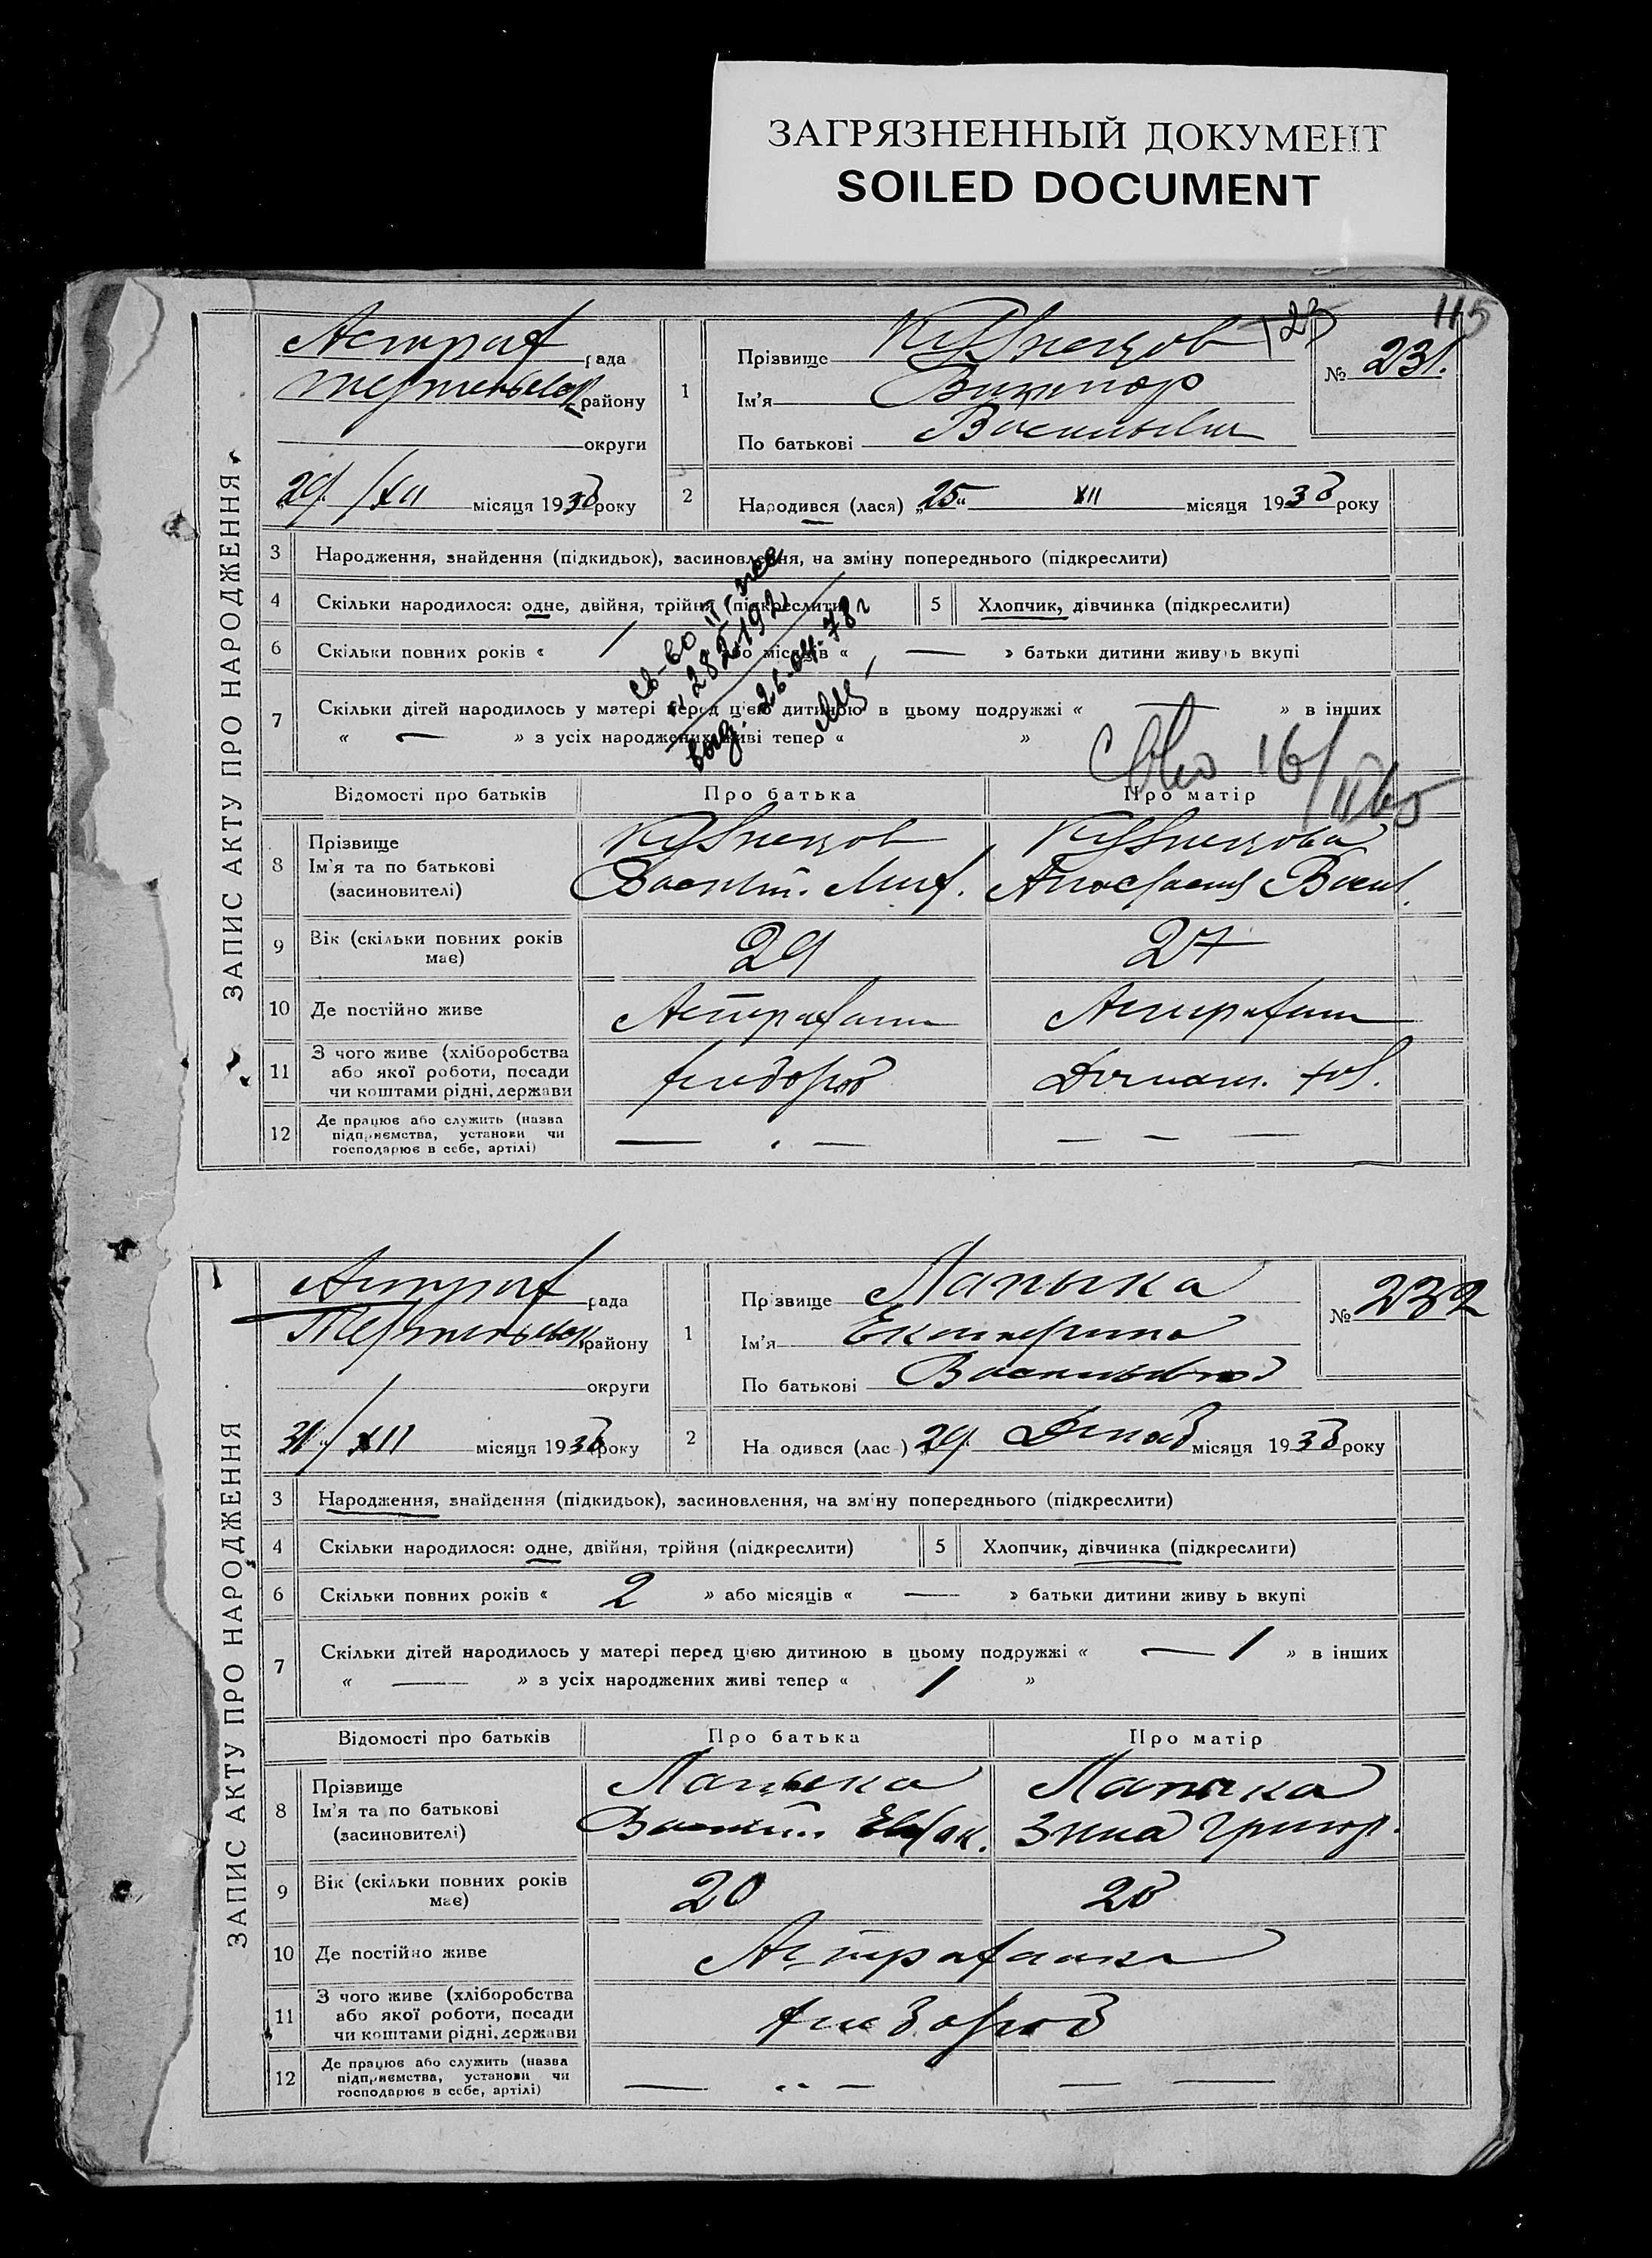 ЗАГРЯЗНЕННЫЙ ДОКУМЕНТ
SOILED DOCUMENT
115
123
ЗАПИС АКТУ ПРО НАРОДЖЕННЯ
Астраф рада
району
округи
29/XII місяця 1938 року
1 Прізвище Кузнецов
Ім'я Виктор
По батькові Васильевич
№ 231.
2 Народився (лася) „25“ XII місяця 1938 року
3 Народження, знайдення (підкидьок), засиновлення, на зміну попереднього (підкреслити)
4 Скільки народилося: одне, двійня, трійня (підкреслити)
5 Хлопчик, дівчинка (підкреслити)
6 Скільки повних років « 1 » або місяців « — » батьки дитини живуть вкупі
7 Скільки дітей народилось у матері перед цією дитиною в цьому подружжі « — » в інших
« — » з усіх народжених живі тепер « — »
св-во II
282192
выд. 26.04.78г
16/II 65
Відомості про батьків Про батька Про матір
8 Прізвище Кузнецов Кузнецова
Ім'я та по батькові
(засиновителі) Васил. Мит. Васил.
9 Вік (скільки повних років має) 29 27
10 Де постійно живе
11 З чого живе (хліборобства
або якої роботи, посади
чи коштами рідні, держави Домаш. хоз.
12 Де працює або служить (назва
підприємства, установи чи
господарює в себе, артілі) — . — — — —
ЗАПИС АКТУ ПРО НАРОДЖЕННЯ
Астраф рада
району
округи
31/XII місяця 1938 року
1 Прізвище Лапыка
Ім'я Екатерина
По батькові Васильевна
№ 232
2 На одився (лас ) 29. місяця 1938 року
3 Народження, знайдення (підкидьок), засиновлення, на зміну попереднього (підкреслити)
4 Скільки народилося: одне, двійня, трійня (підкреслити)
5 Хлопчик, дівчинка (підкреслити)
6 Скільки повних років « 2 » або місяців « — » батьки дитини живу ь вкупі
7 Скільки дітей народилось у матері перед цією дитиною в цьому подружжі « — 1 » в інших
« — » з усіх народжених живі тепер « 1 »
Відомості про батьків Про батька Про матір
8 Прізвище Лапыка Лапыка
Ім'я та по батькові
(засиновителі) Васил. Зина Григор.
9 Вік (скільки повних років має) 20 20
10 Де постійно живе Астраханка
11 З чого живе (хліборобства
або якої роботи, посади
чи коштами рідні, держави
12 Де працює або служить (назва
підприємства, установи чи
господарює в себе, артілі) — .. — — —